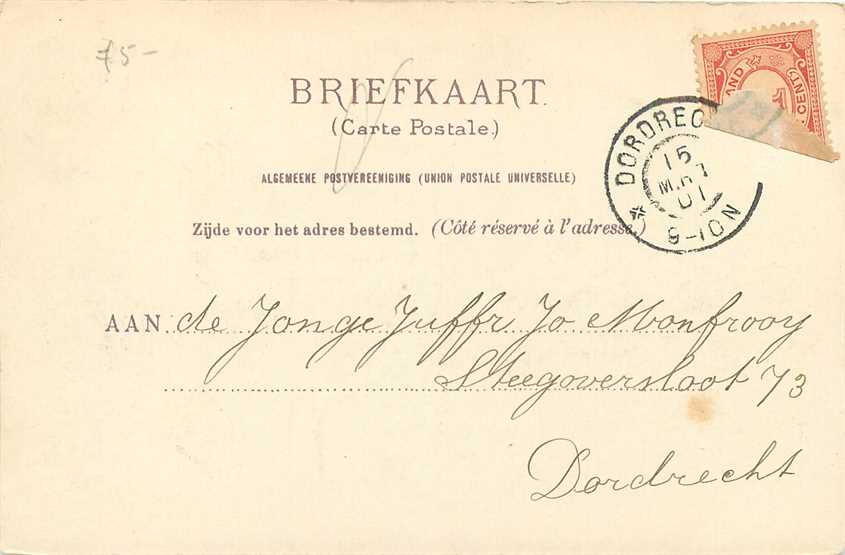 75-
BRIEFKAART.
(Carte Postale.)
ALGEMEENE POSTVEREENIGING (UNION POSTALE UNIVERSELLE)
Zijde voor het adres bestemd. (Côté réservé à l'adresse.)
DORDREC
15
01
9-10N
CENT.
AAN de Jonge Juffr. Jo Monfrooy
Steegoversloot 73
Dordrecht